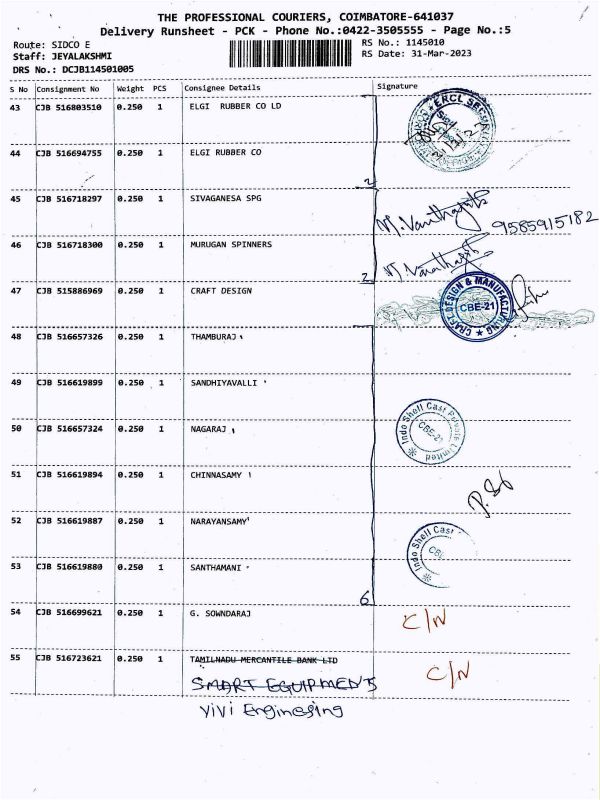 THE PROFESSIONAL COURIERS, COIMBATORE-641037
Delivery Runsheet - PCK - Phone No.:0422-3505555 - Page No.:5
Route: SIDCO E
RS No.: 1145010
Staff: JEYALAKSHMI
RS Date: 31-Mar-2023
DRS No.: DCJB114501005
S No Consignment No Weight PCS Consignee Details Signature
43 CJB 516803510 0.250 1 ELGI RUBBER CO LD
ERCL SECURITY
44 CJB 516694755 0.250 1 ELGI RUBBER CO
2
45 CJB 516718297 0.250 1 SIVAGANESA SPG
9585915182
46 CJB 516718300 0.250 1 MURUGAN SPINNERS
2
47 CJB 515886969 0.250 1 CRAFT DESIGN
CRAFT DESIGN & MANUFACTURING
CBE-21
48 CJB 516657326 0.250 1 THAMBURAJ
49 CJB 516619899 0.250 1 SANDHIYAVALLI
50 CJB 516657324 0.250 1 NAGARAJ
Indo Shell Cast Private Limited
CBE-21
51 CJB 516619894 1 0.250 CHINNASAMY
52 CJB 516619887 0.250 1 NARAYANSAMY
Indo Shell Cast
53 CJB 516619880 0.250 1 SANTHAMANI
6
54 CJB 516699621 0.250 1 G. SOWNDARAJ
C/N
55 CJB 516723621 0.250 1 TAMILNADU MERCANTILE BANK LTD
C/N
SMART EQUIPMENTS
ViVi Engineesing